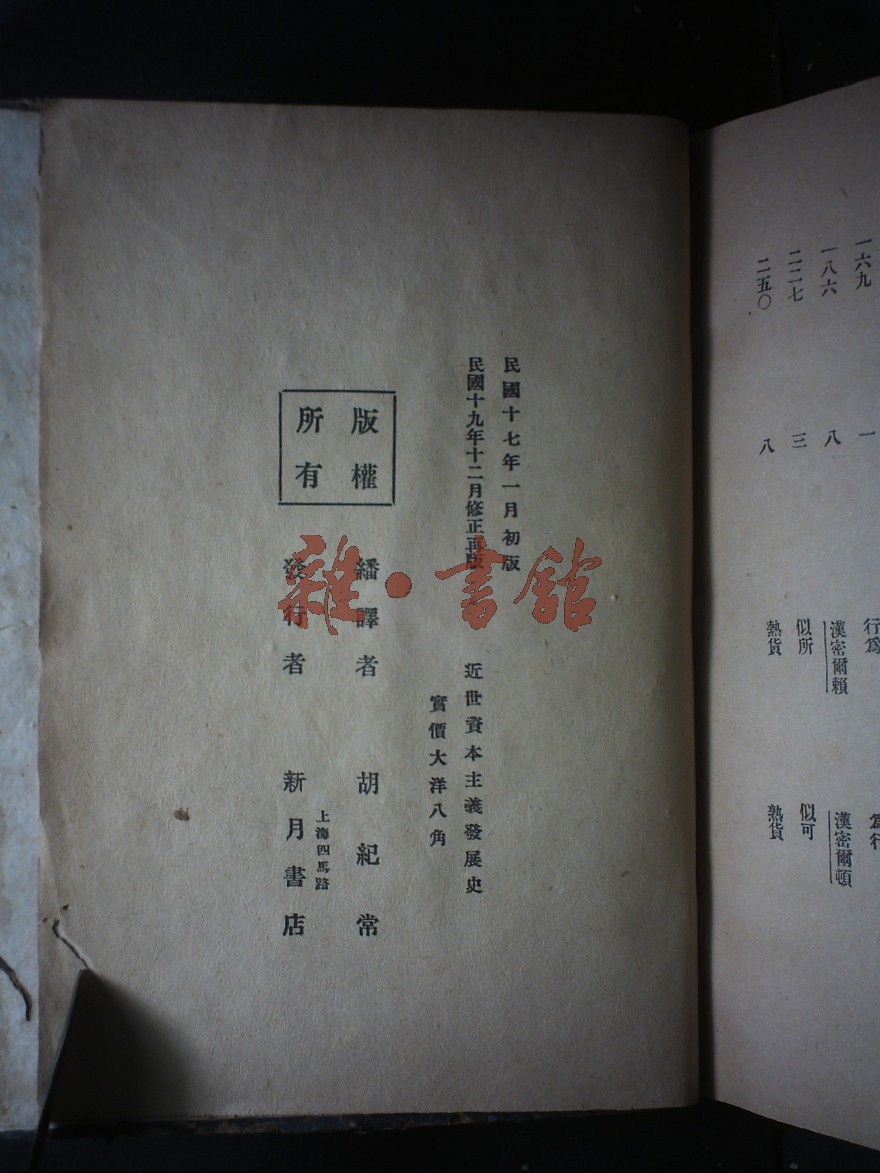 一六九　一　行爲　爲行
一八六　八　漢密爾賴　漢密爾頓
二二七　三　似所　似可
二五〇　八　熱貨　熱貨
民國十七年一月初版
民國十九年十二月修正再版
近世資本主義發展史
實價大洋八角
版權
所有
繙譯者　胡紀常
上海四馬路
發行者　新月書店
雜·書館